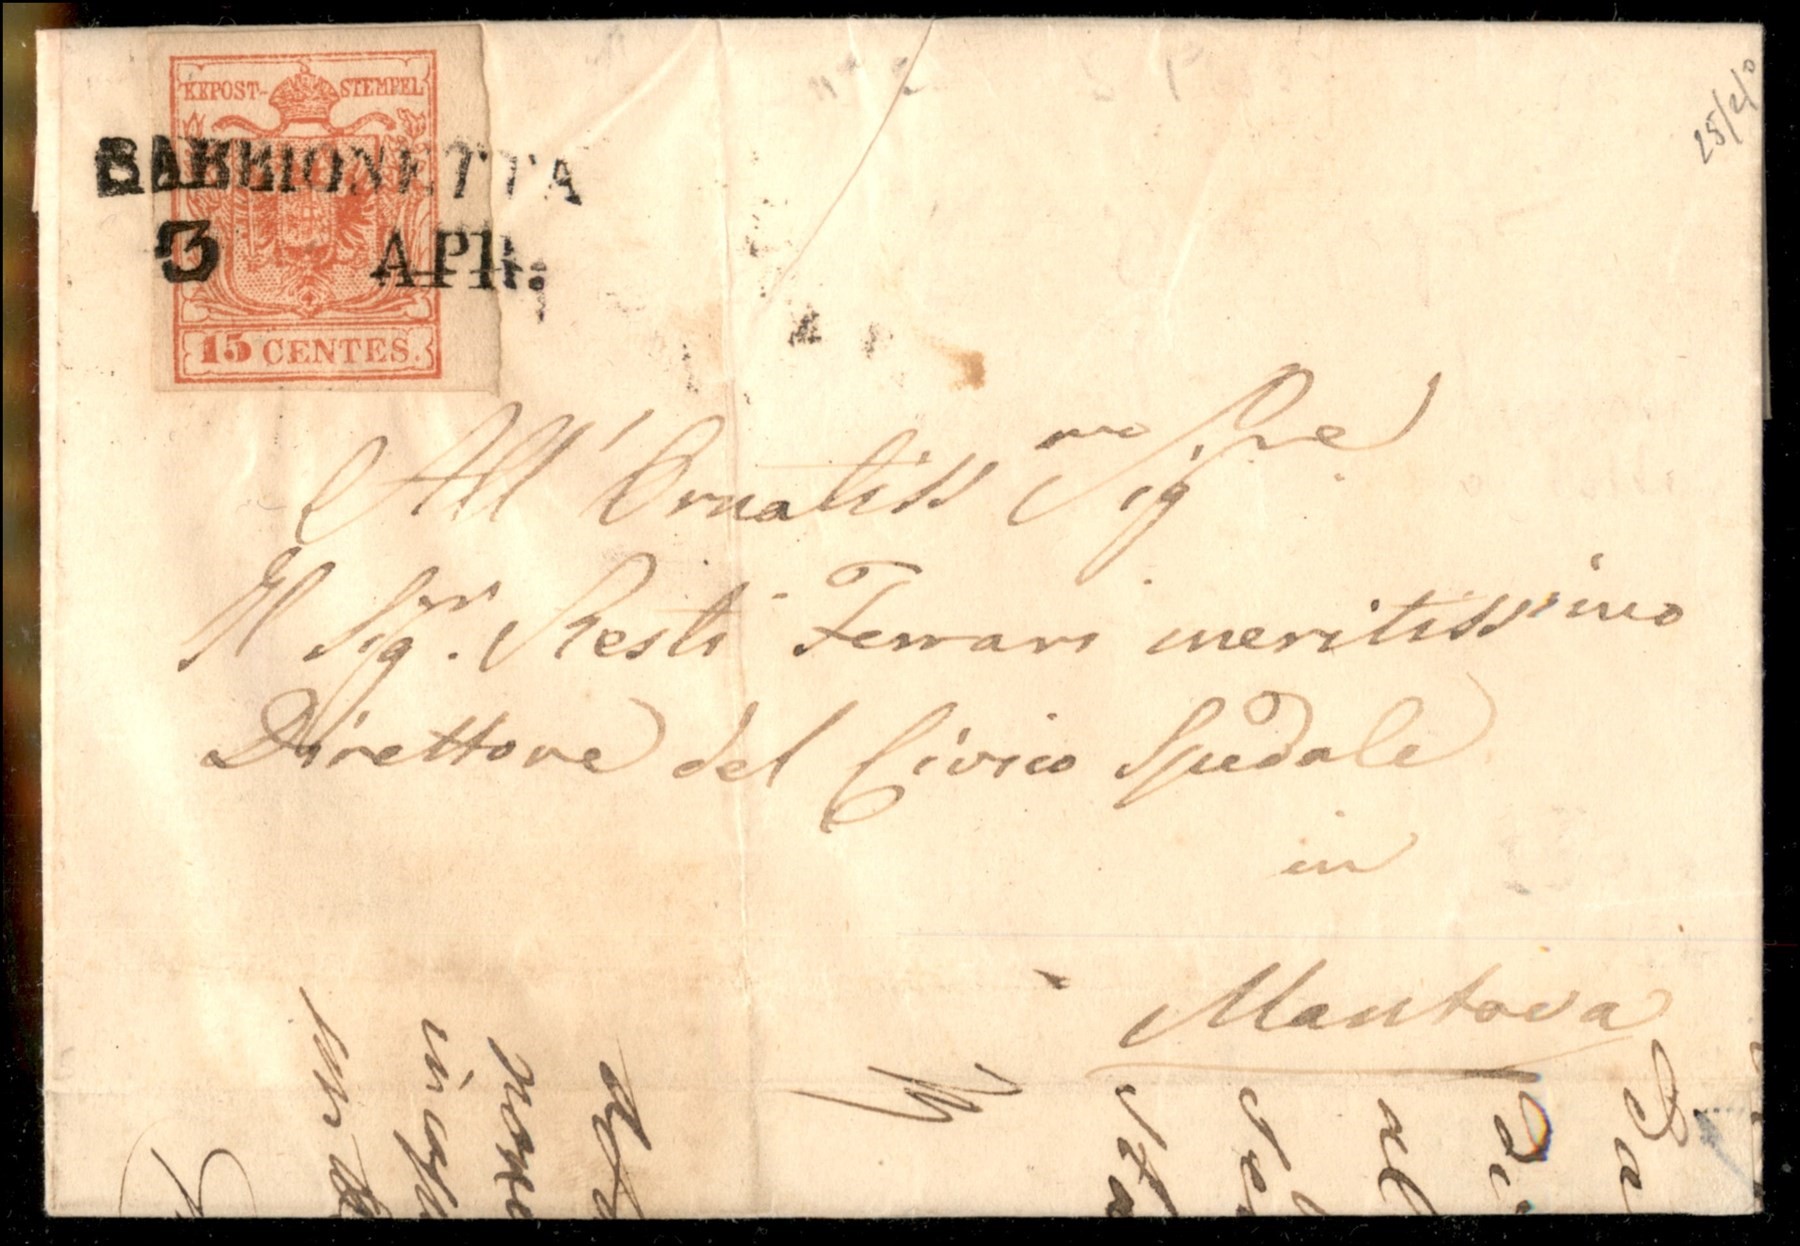 KKPOST- STEMPEL
SABBIONETTA
3 APR.
15 CENTES.
25/2/0
All' Ornatiss mo Sig. re
Il Sigr. Resti Ferrari meritissimo
Direttore del Civico Spedale
in
Mantova